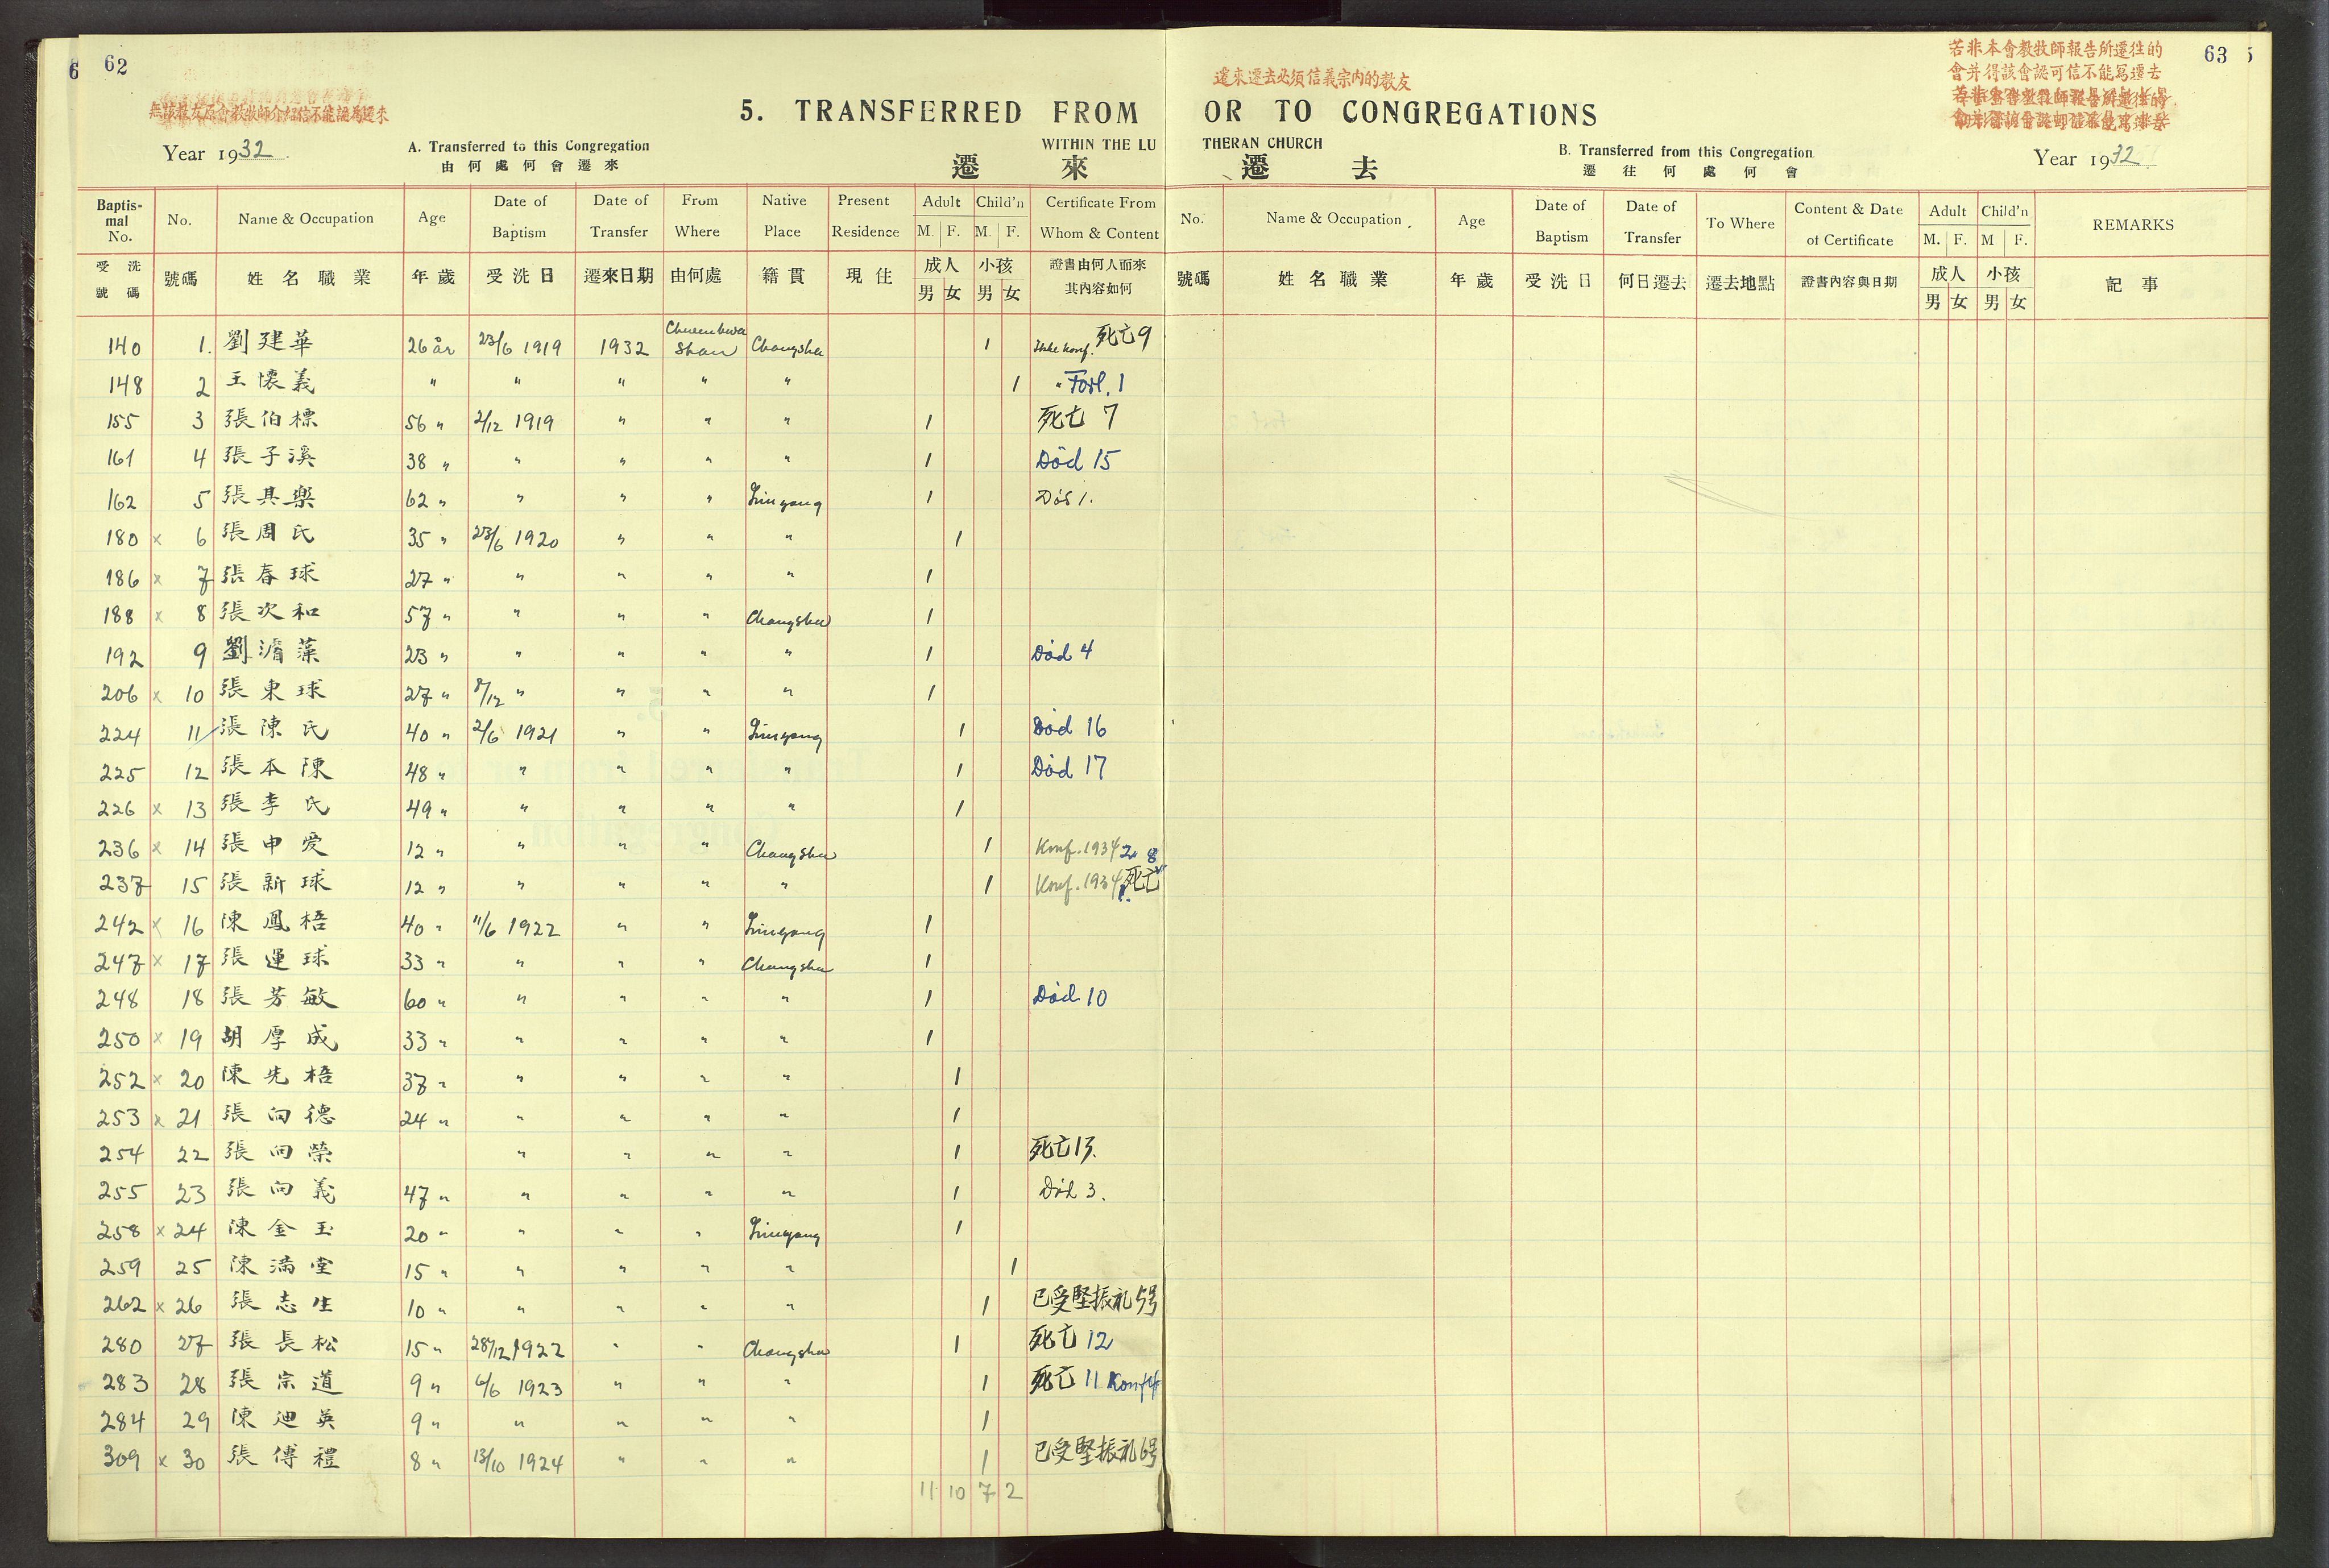 62
無該教友原會教牧師介紹信不能認爲遷來
5. TRANSFERRED FROM
Year 1932.
A. Transferred to this Congregation
WITHIN THE LU
由何處何會遷來
遷來
Baptismal No. No. Name & Occupation Age Date of Baptism Date of Transfer From Where Native Place Present Residence Adult M. F. Child'n M. F. Certificate From Whom & Content
受洗號碼 號碼 姓名職業 年歲 受洗日 遷來日期 由何處 籍貫 現住 成人 男 女 小孩 男 女 證書由何人而來其內容如何
140 1. 劉建華 26 år 23/6 1919 1932 Shan Changsha 1 Ikke konf. 死亡9
148 2 王懷義 " " " " " 1 " Forl. 1
155 3 張伯標 56 " 2/12 1919 " " " 1 死亡 7
161 4 張子溪 38 " " " " " 1 Död 15
162 5 張其樂 62 " " " " Liuyang 1 Död 1.
180 x 6 張周氏 35 " 23/6 1920 " " " 1
186 x 7 張春球 27 " " " " " 1
188 x 8 張次和 57 " " " " Changsha 1
192 9 劉濬藻 23 " " " " " 1 Død 4
206 x 10 張東球 27 " 8/12 " " " " 1
224 11 張陳氏 40 " 2/6 1921 " " Liuyang 1 Død 16
225 12 張本陳 48 " " " " " 1 Død 17
226 x 13 張李氏 49 " " " " " 1
236 x 14 張申愛 12 " " " " Changsha 1 Konf. 1934 2. 8
237 15 張新球 12 " " " " " 1 Konf. 1934 死亡
242 x 16 陳鳳梧 40 " 11/6 1922 " " Liuyang 1
247 x 17 張運球 33 " " " " Changsha 1
248 18 張芳敏 60 " " " " " 1 Død 10
250 x 19 胡厚成 33 " " " " " 1
252 x 20 陳先梧 37 " " " " " 1
253 x 21 張向德 24 " " " " " 1
254 22 張向榮 " " " " 1 死亡13.
255 23 張向義 47 " " " " " 1 Död 3.
258 x 24 陳金玉 20 " " " " Liuyang 1
259 25 陳滿堂 15 " " " " " 1
262 x 26 張志生 10 " " " " " 1 已受堅振礼5号
280 27 張長松 15 " 28/12 1922 " " Changsha 1 死亡 12
283 28 張宗道 9 " 6/6 1923 " " " 1 死亡 11 Konf
284 29 陳迪英 9 " " " " " 1
309 x 30 張傳禮 8 " 13/10 1924 " " " 1 已受堅振礼6号
11 10 7 2
63
若非本會教牧師報告所遷往的
會并得該會認可信不能寫遷去
遷來遷去必須信義宗內的教友
OR TO CONGREGATIONS
THERAN CHURCH
B. Transferred from this Congregation
Year 1932
遷去
遷往何處何會
No. Name & Occupation Age Date of Baptism Date of Transfer To Where Content & Date of Certificate Adult M. F. Child'n M F. REMARKS
號碼 姓名職業 年歲 受洗日 何日遷去 遷去地點 證書內容與日期 成人 男 女 小孩 男 女 記事